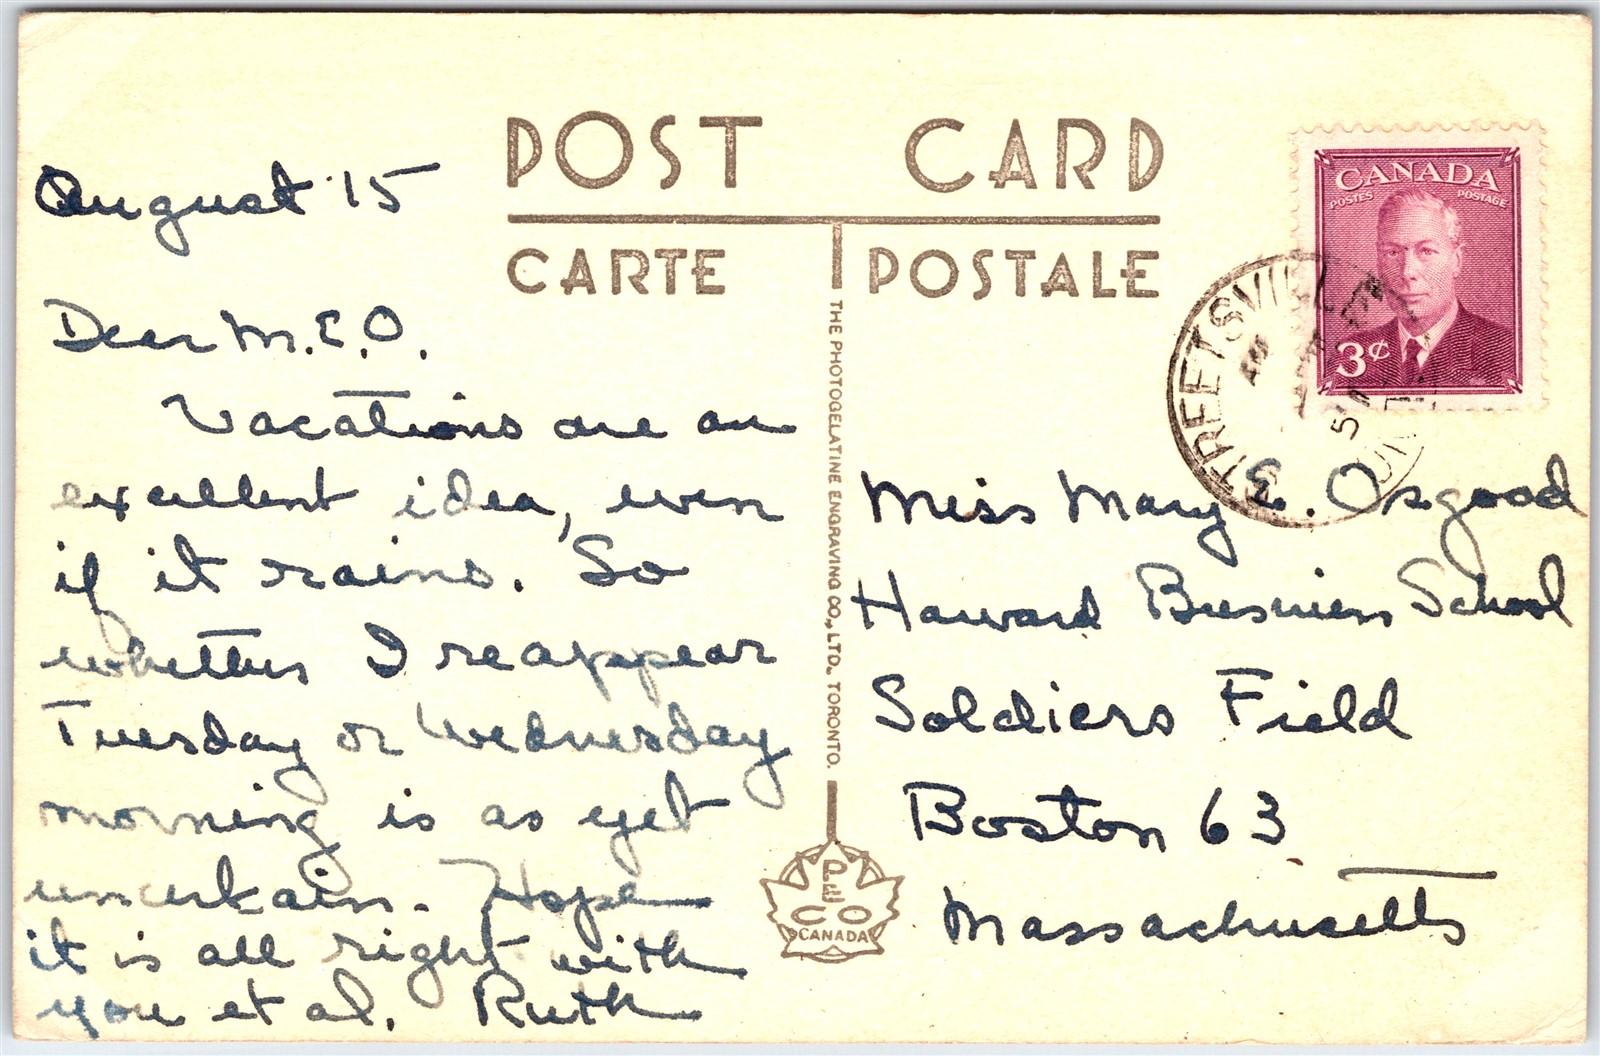 POST CARD
CARTE POSTALE
August 15
Dear M.E.O.
Vacations are an
excellent idea, even
if it rains. So
whether I reappear
Tuesday or Wednesday
morning is as yet
uncertain. Hope
it is all right with
you et al. Ruth
THE PHOTOGELATINE ENGRAVING CO., LTD., TORONTO.
CO
CANADA
CANADA
POSTES POSTAGE
3¢
STREETSVILLE
AM
Miss Mary E. Osgood
Harvard Business School
Soldiers Field
Boston 63
Massachusetts